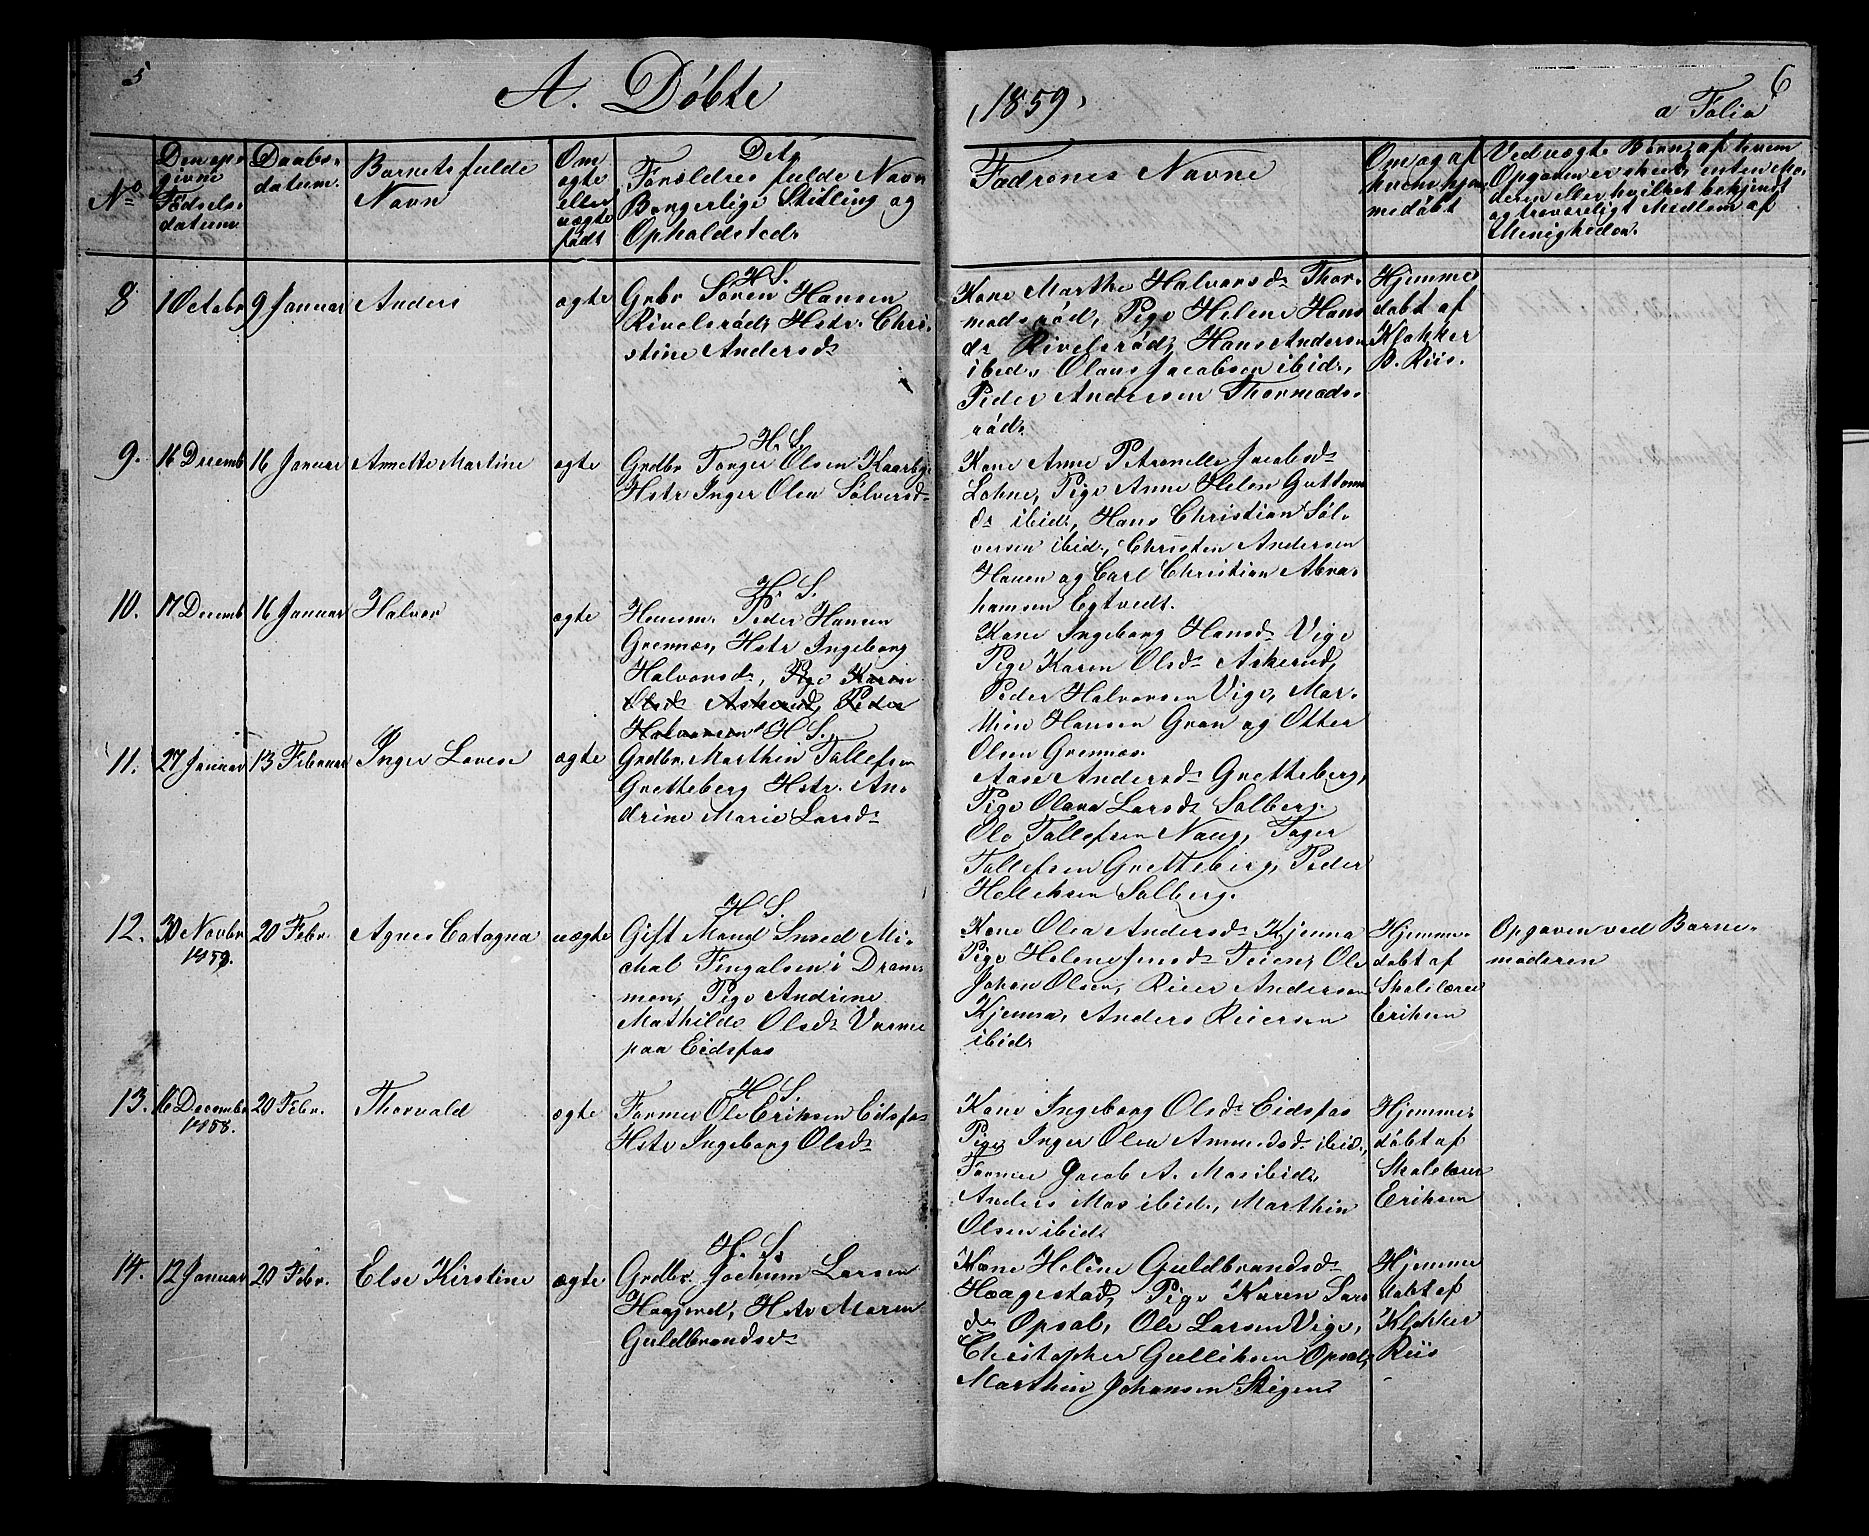 5
A. Døbte
1859,
6
a Folia
No
Den op-
givne
Fødsels-
datum
Daabs-
datum.
Barnets fulde
Navn
Om
ægte
eller
uægte
født
Dets
Forældres fulde Navn
Borgerlige Stilling og
Opholdsted.
Fadrenes Navne
Om og af
hvem hjem-
medøbt
Ved uægte Børn, af hvem
Opgaven er skeet, enten Mo-
deren eller hvilket bekjendt
og troværdigt Medlem af
Menigheden.
8
1 Octobr
9 Januar
Anders
ægte
H. S.
Grbr Søren Hansen
Rivelsrød, Hstr. Chri-
stine Andersd.
Kone Marthe Halvorsd. Thor-
modsrød, Pige Helene Hans
d. Rivelsrød, Hans Andersen
ibid., Olaus Jacobsen ibid.,
Peder Andersen Thormods-
rød.
Hjemme
døbt af
Klokker
B. Riis.
9.
16 Decemb
16 Januar
Annette Martine
ægte
H. S.
Grdbr Torger Olsen Kaarby
Hstr Inger Olea Sølversd.
Kone Anne Petronelle Jacobsd.
Lohne, Pige Anne Helen Guttorm
d. ibid., Hans Christian Søl-
versen ibid., Christen Andersen
Hauen og Carl Christian Abra-
hamsen Egtvedt.
10.
17 Decemb
16 Januar
Halvor
ægte
H. S.
Huusm. Peder Hansen
Grennæs, Hstr Ingeborg
Halvorsd., Pige Karen
Olsd. Askerud, Peder
Halvorsen
Kone Ingeborg Hansd. Vige
Pige Karen Olsd. Askerud,
Peder Halvorsen Vige, Mar-
thin Hansen Gran og Otter
Olsen Grennæs.
11.
27 Januar
13 Februar
Inger Lovise
ægte
H. S.
Grdbr. Marthin Tollefsen
Gretteberg Hstr. An-
drine Marie Larsd.
Aase Andersd. Gretteberg,
Pige Olava Larsd. Solberg.
Ole Tollefsen Naug, Torger
Tollefsen Gretteberg, Peder
Helleksen Solberg.
12.
30 Novbr
1858.
20 Febr.
Agnes Catagna
uægte
H. S.
Gift Mand Smed Mi-
chal Fingalsen i Dram-
men, Pige Andrine
Mathilde Olsd. Varme
paa Eidsfos
Kone Olea Andersd. Kjenna
Pige Helene Jensd. Feiene, Ole
Johan Olsen, Reier Andersen
Kjenna, Anders Reiersen
ibid.
Hjemme-
døbt af
Skolelærer
Eriksen
Opgaven ved Barne-
moderen
13.
16 Decembr
1858.
20 Febr.
Thorvald
ægte
H. S.
Former Ole Eriksen Eidsfos
Hstr Ingeborg Olsd.
Kone Ingeborg Olsd. Eidsfos
Pige Inger Olea Amundsd. ibid.,
Former Jacob A. Moe ibid.
Anders Moe ibid., Marthin
Olsen ibid.
Hjemme-
døbt af
Skolelærer
Eriksen
14.
12 Januar
20 Febr.
Else Kirstine
ægte
H. S.
Grdbr. Jochum Larsen
Haajord, Hstr Maren
Guldbrandsd.
Kone Helene Guldbrandsd.
Haagestad, Pige Karen Lars
d. Opsal, Ole Larsen Vige,
Christopher Gulliksen Opsal,
Marthin Johansen Stigen
Hjemme
døbt af
Klokker
Riis